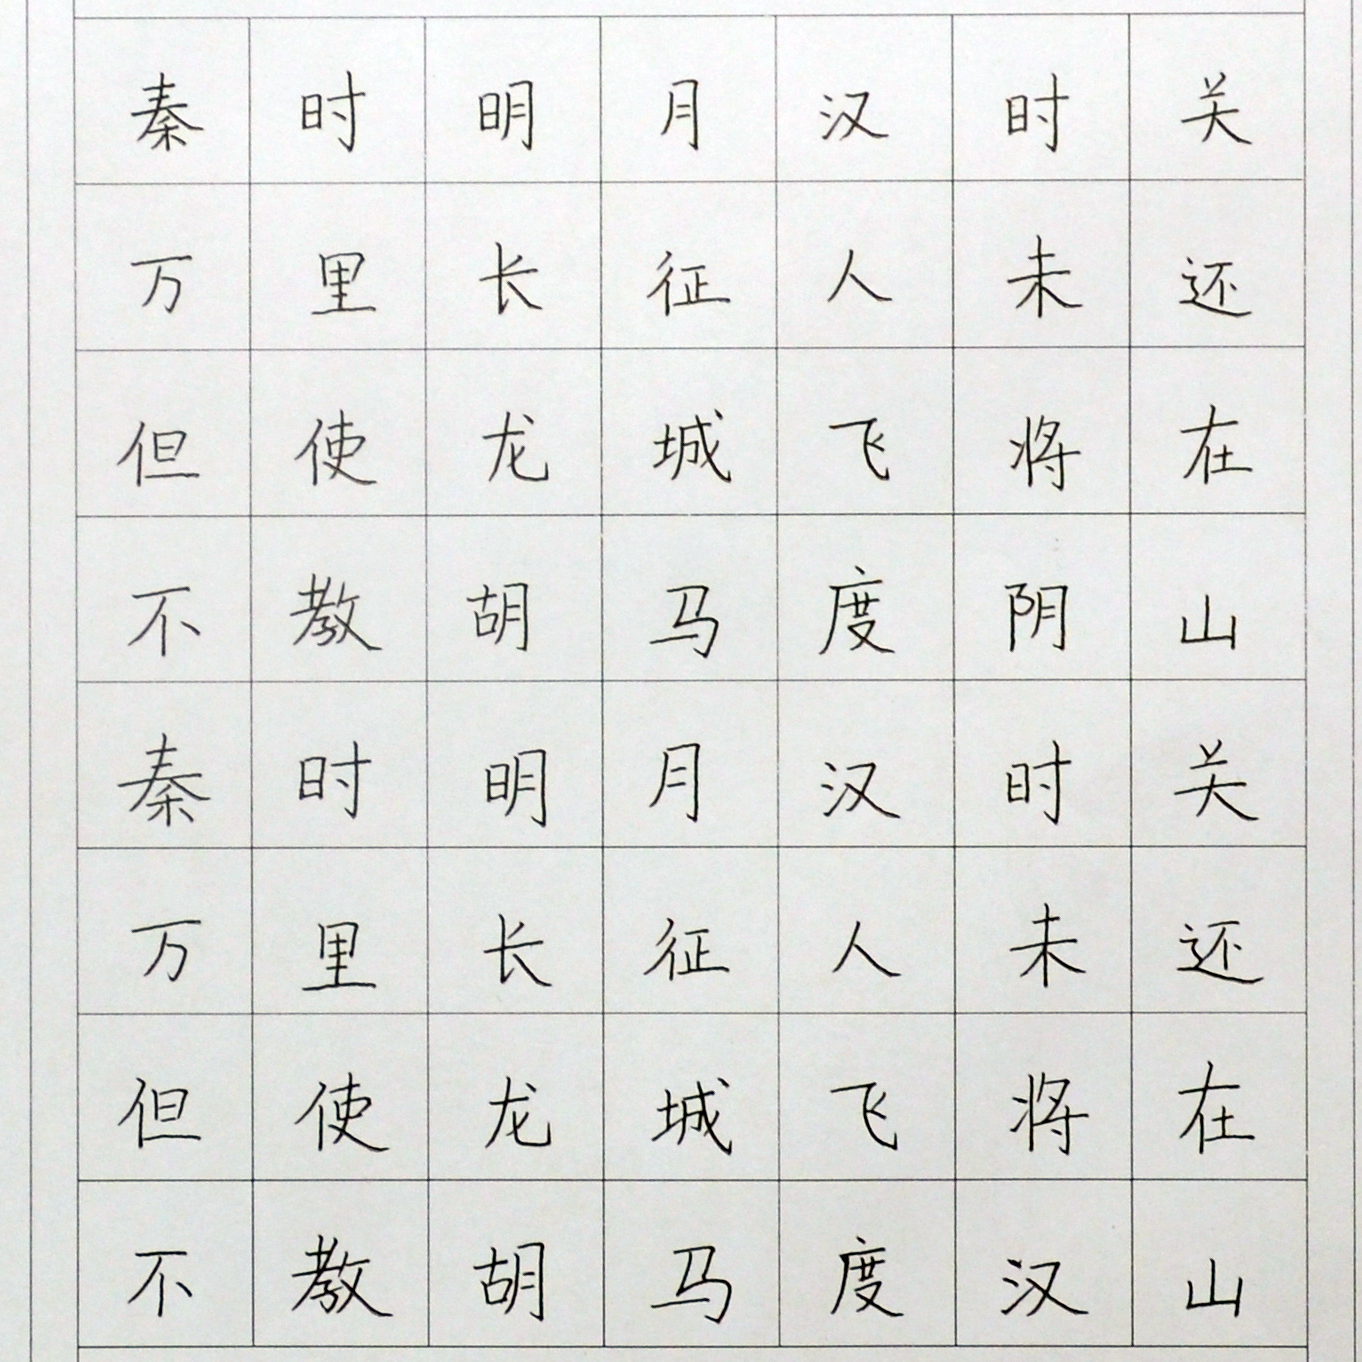 秦时明月汉时关
万里长征人未还
但使龙城飞将在
不教胡马度阴山
秦时明月汉时关
万里长征人未还
但使龙城飞将在
不教胡马度汉山